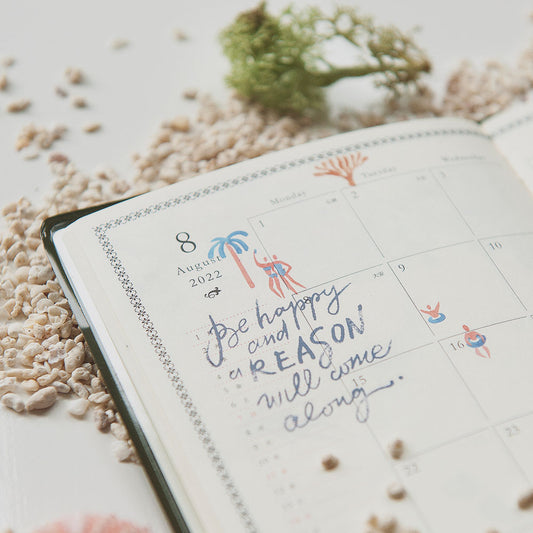 Monday
Tuesday
Wednesday
8
August
2022
1
2
3
8
9
10
15
16
22
23
Be happy
and
a REASON
will come
along.